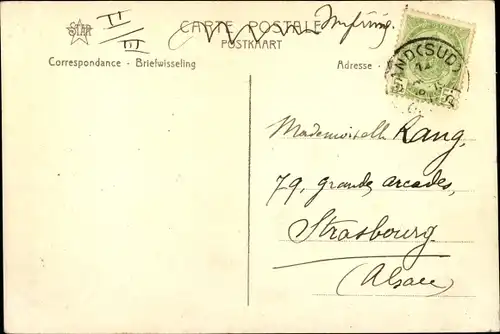 STAR
II
III
CARTE POSTALE
POSTKAART
Correspondance - Briefwisseling
Adresse -
(SUD)
Mademoiselle Rang,
79, grandes arcades,
Strasbourg.
(Alsace)